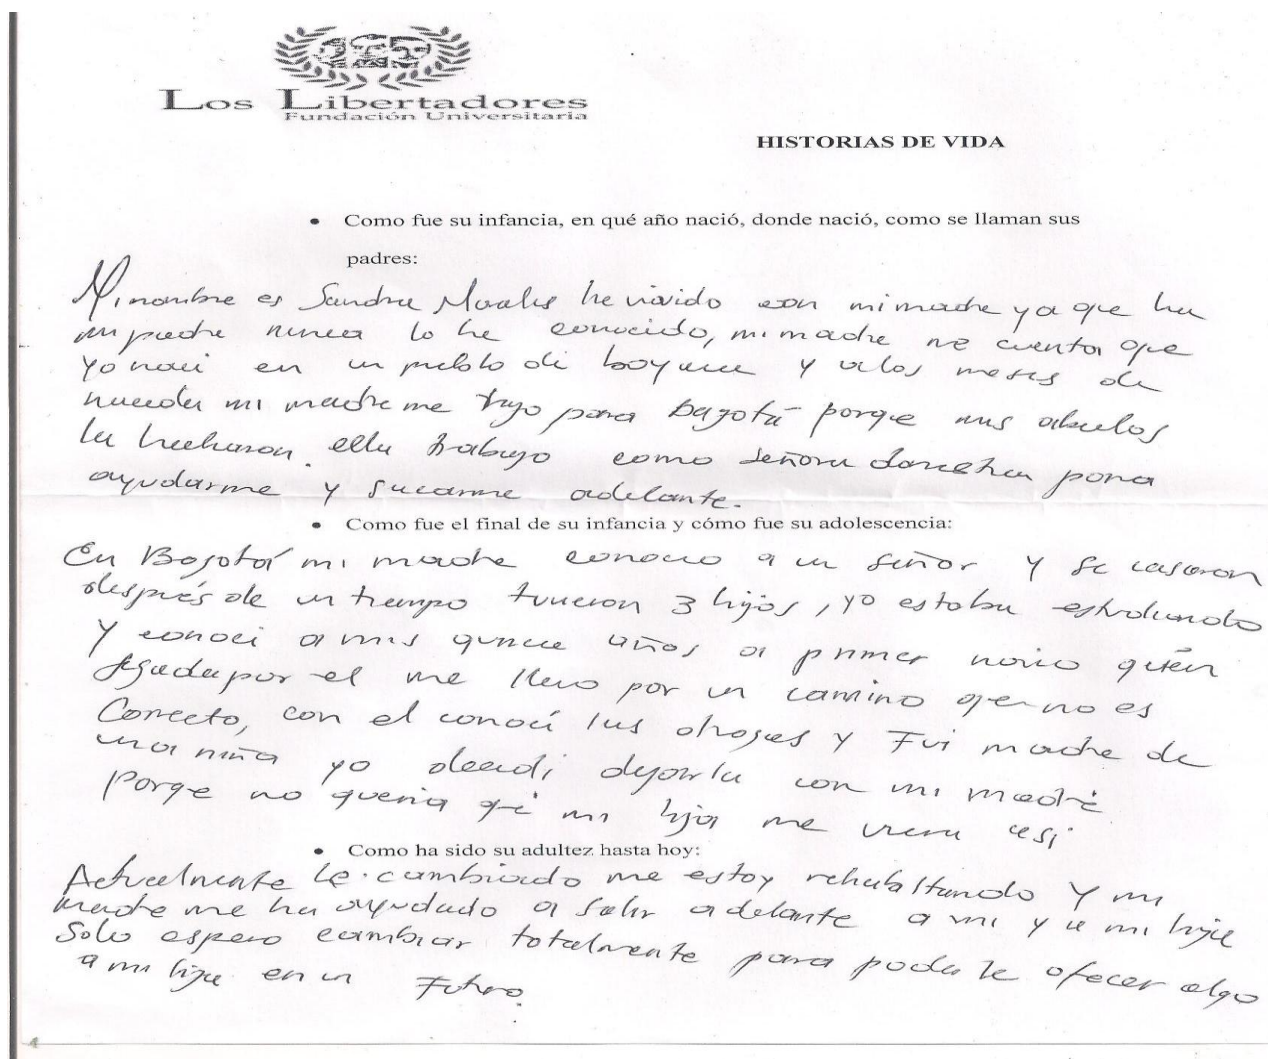 Los Libertadores
Fundación Universitaria
HISTORIAS DE VIDA
• Como fue su infancia, en qué año nació, donde nació, como se llaman sus
padres:
Mi nombre es Sandra Morales he vivido con mi madre ya que ha
mi padre nunca lo he conocido, mi madre me cuenta que
yo naci en un pueblo de boyaca y a los meses de
nacida mi madre me trajo para bogotá porque mis abuelos
la hecharon. ella trabajo como señora para
ayudarme y sacarme adelante.
• Como fue el final de su infancia y cómo fue su adolescencia:
En Bogotá mi madre conocio a un señor y se casaron
después de un tiempo tuvieron 3 hijos, yo estaba estudiando
y conoci a mis quince años a primer novio quién
por el me llevo por un camino que no es
Correcto, con el conocí las drogas y Fui madre de
una niña yo decidi dejarla con mi madre
Porqe no queria qé mi hija me viera asi
• Como ha sido su adultez hasta hoy:
Actualmente he cambiado me estoy rehabiltando y mi
madre me ha ayudado a salir adelante a mi y a mi hija
Solo espero cambiar totalmente para poder le ofecer algo
a mi hija en un Futuro.